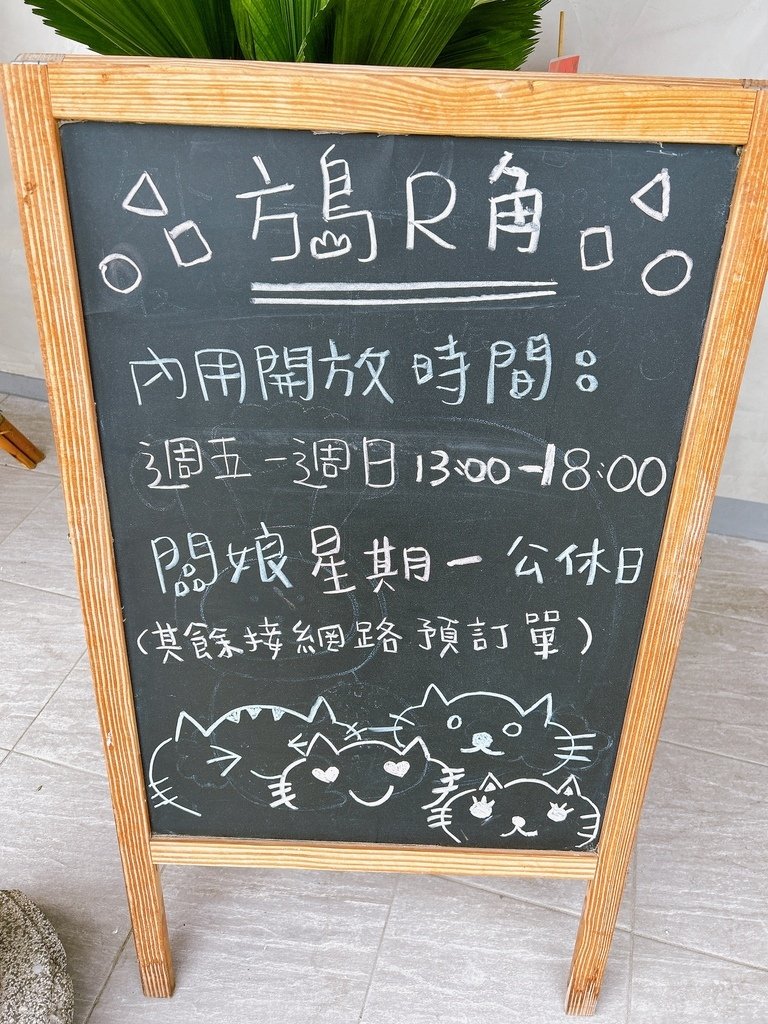 方鳥R角
內用開放時間：
週五-週日13:00-18:00
闆娘星期一公休日
(其餘接網路預訂單)